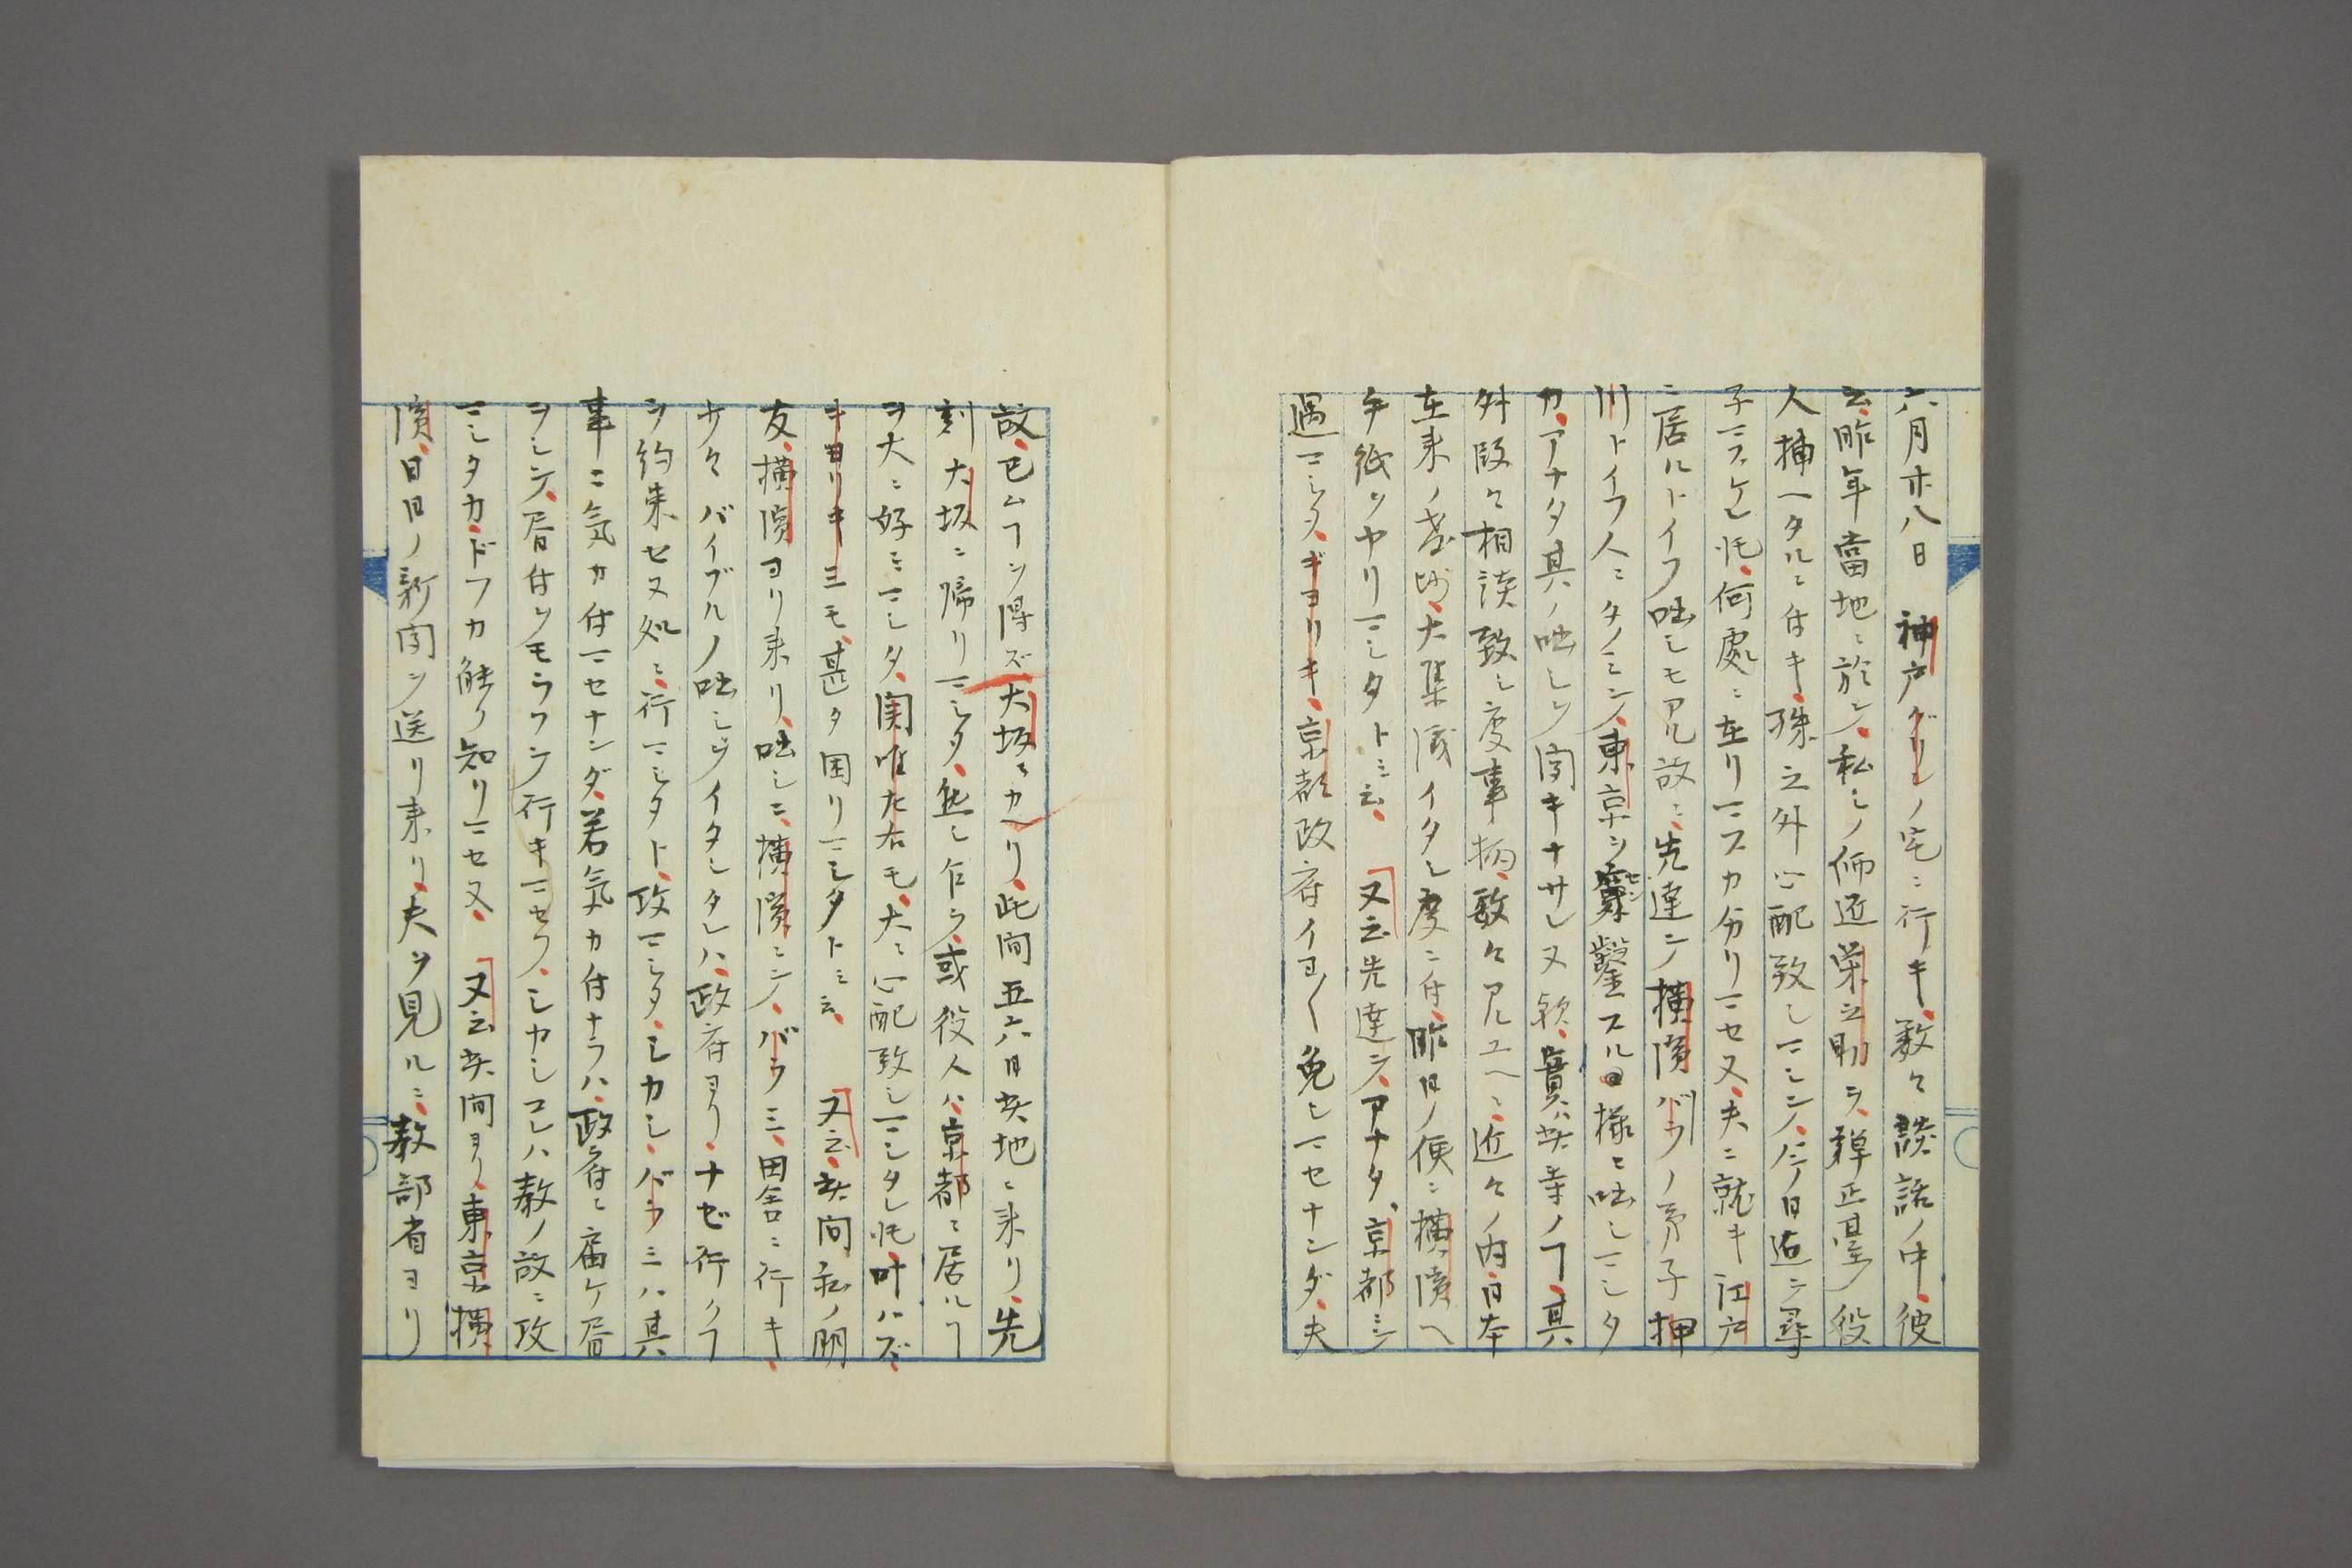 六月廿八日　神戸グリンノ宅ニ行キ、数々談話ノ中、彼
云、昨年當地ニ於テ、私シノ師匠栄之助ヲ、弾正臺ノ役
人捕ヘタルニ付キ、殊之外心配致しマシテ、今日迠ニ尋
子マスケレ𪜈、何處ニ在リマスカ分リマセヌ、夫ニ就キ江戸
ニ居ルトイフ咄しモアル故ニ、先達テ横濱バラノ弟子押
川トイフ人ニタノミシテ、東京ヲ穿鑿スル様ニ咄しマシタ
カ、アナタ其ノ咄しヲ聞キナサレヌ歟、實ハ其寺ノヿ、其
外段々相談致し度事柄、数々アルユヘニ、近々ノ内日本
在来ノ大集議イタし度ニ付、昨日ノ便ニ横濱ヘ
手紙ヲヤリマシタトミ云、　又云先達テ、アナタ、京都ニテ
遇マシタ、ギヨリキ、京都政府イヨ〱免しマセナンダ、夫
故、已ムヿヲ得ズ大坂ニカヘリ、此間五六日其地ニ来リ、先
刻大坂ニ帰リマシタ、然し乍ラ、或役人ハ、京都ニ居ルヿ
ヲ大ニ好ミマシタ、関唯た右モ、大ニ心配致しマシタレ𪜈叶ハズ、
ギヨリキーモ、甚タ困リマシタトミ云、　又云、其間私ノ朋
友、横濱ヨリ来リ、咄しニ、横濱ニテ、バラミ、田舎ニ行キ、
サ々バイブルノ咄しヲイタしタレハ、政府ヨリ、ナゼ行クヿ
ヲ約束セヌ処ニ、行マシタト、攻マシタ、シカし、バラミハ其
事ニ気カ付マセナンダ、若気カ付ナラハ、政府ニ届ケ届
ヲシテ、届付ヲモラフテ行キマセウ、シカしコレハ教ノ故ニ攻
マシタカ、ドフカ能ク知リマセヌ、　又云其間ヨリ、東京横
濱、日日ノ新聞ヲ送リ来リ、夫ヲ見ルニ、教部省ヨリ